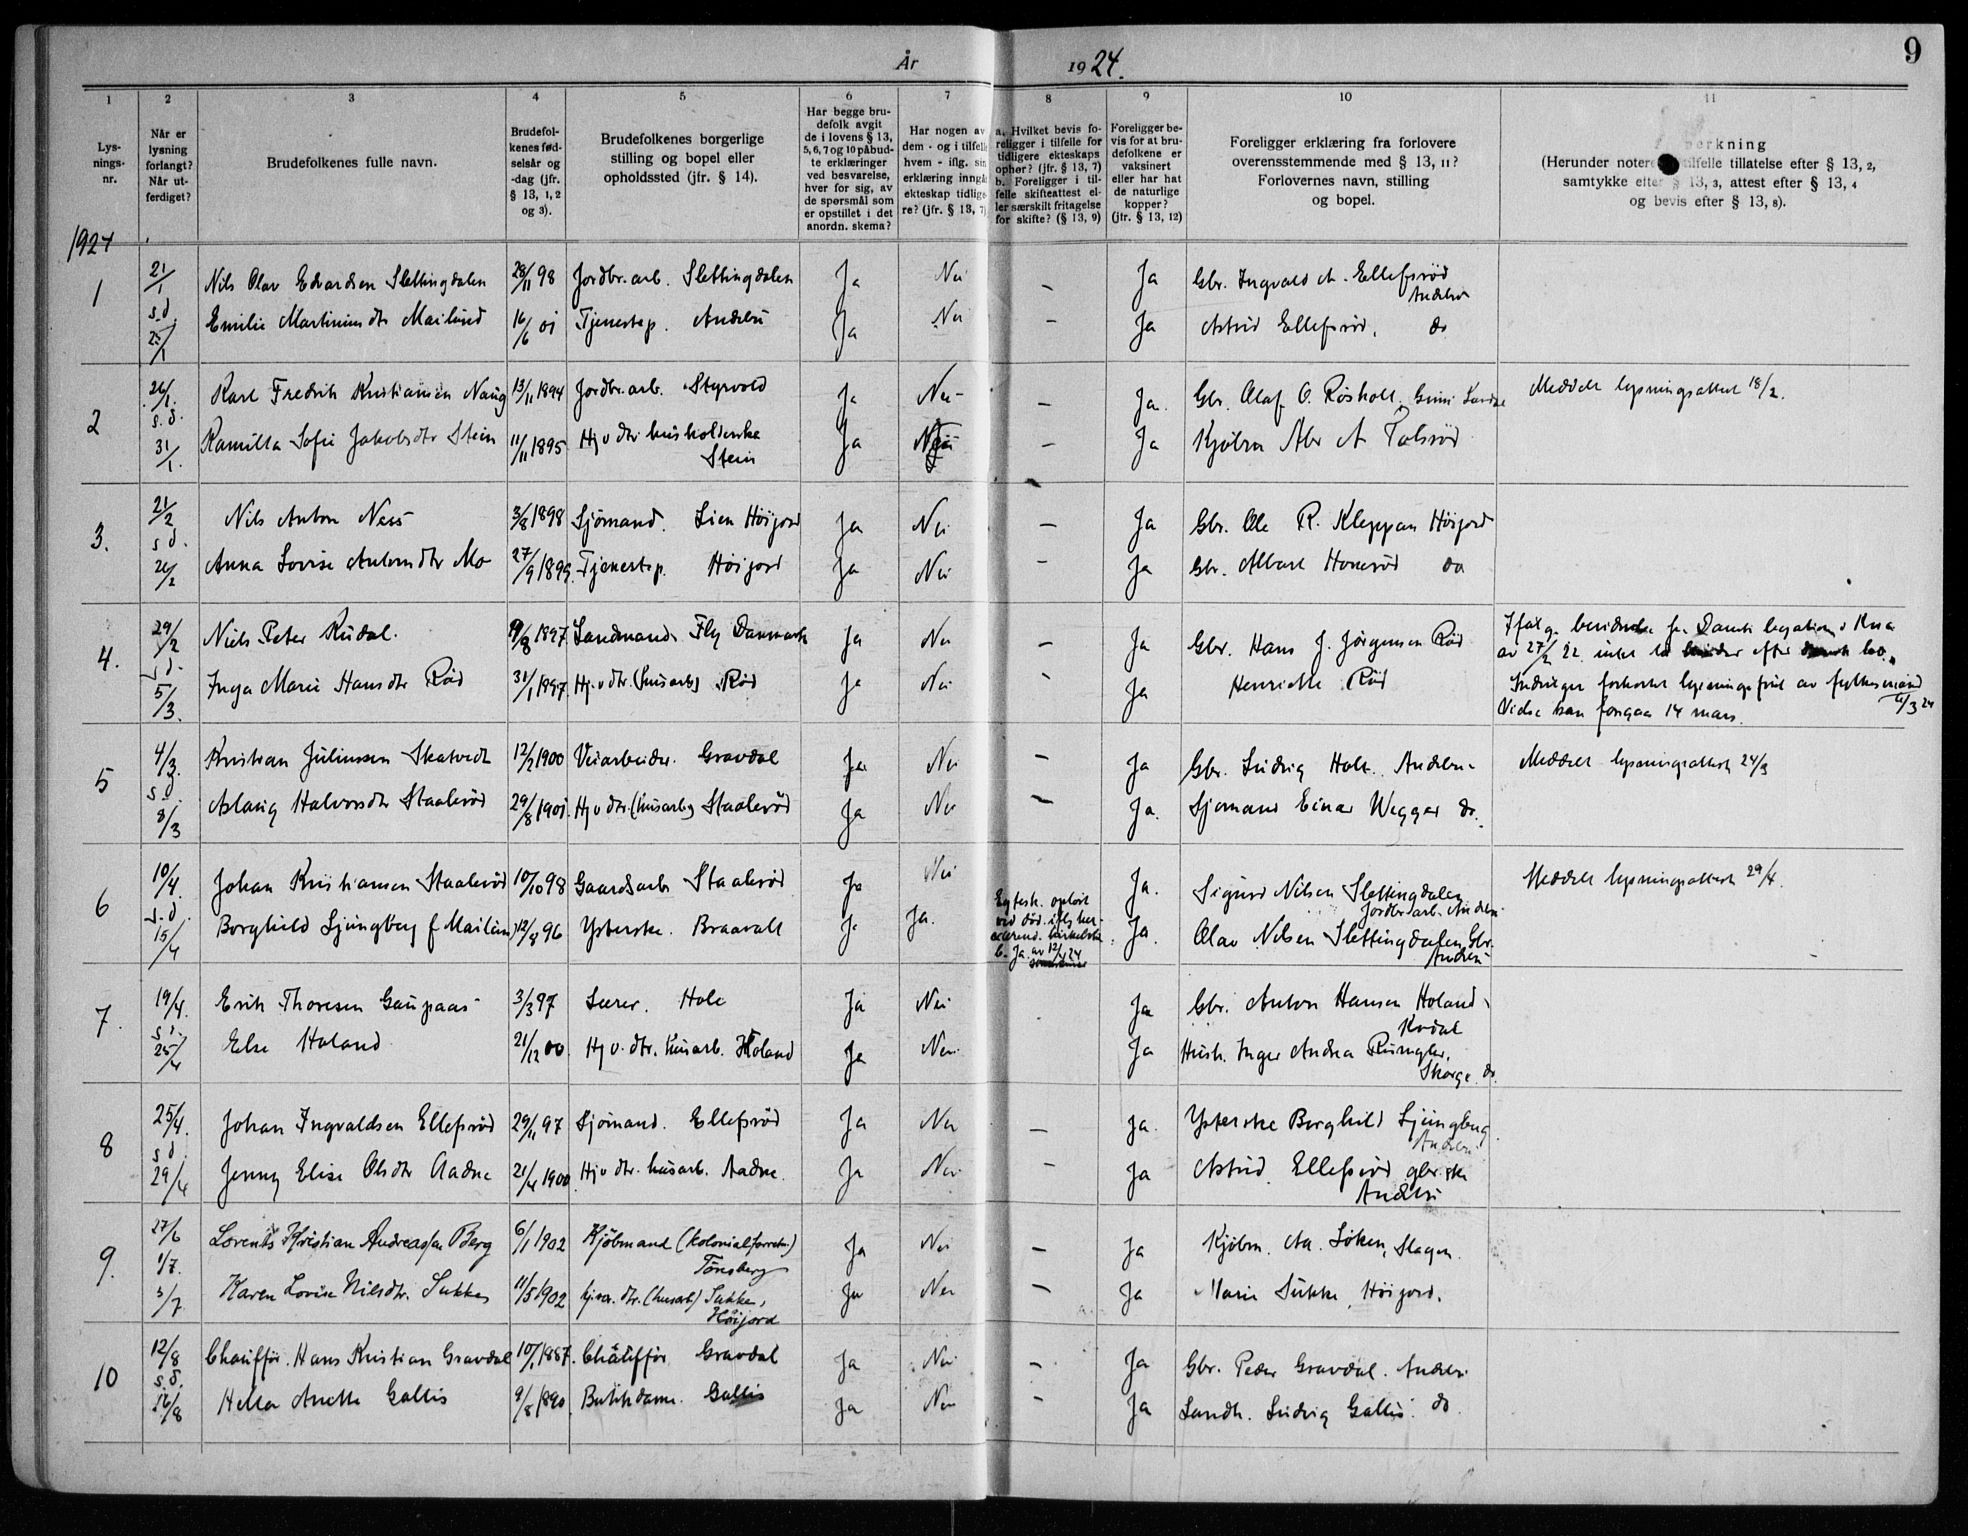 År 1924.
9
1
2
3
4
5
6
7
8
9
10
11
Lys-
nings-
nr.
Når er
lysning
forlangt?
Når ut-
ferdiget?
Brudefolkenes fulle navn.
Brudefol-
kenes fød-
selsår og
-dag (jfr.
§ 13, 1, 2
og 3).
Brudefolkenes borgerlige
stilling og bopel eller
opholdssted (jfr. § 14).
Har begge bru-
defolk avgit
de i lovens § 13,
5, 6, 7 og 10 påbud-
te erklæringer
ved besvarelse,
hver for sig, av
de spørsmål som
er opstillet i det
anordn. skema?
Har nogen av
dem - og i tilfelle
hvem - iflg. sin
erklæring inngå
ekteskap tidlige-
re? (jfr. § 13, 7)
a. Hvilket bevis fo-
religger i tilfelle for
tidligere ekteskaps
ophør? (jfr. § 13, 7)
b. Foreligger i til-
felle skifteattest el-
ler særskilt fritagelse
for skifte? (§ 13, 9)
Foreligger be-
vis for at bru-
defolkene er
vaksinert
eller har hat
de naturlige
kopper?
(jfr. § 13, 12)
Foreligger erklæring fra forlovere
overensstemmende med § 13, 11?
Forlovernes navn, stilling
og bopel.
erkning
(Herunder notere tilfelle tillatelse efter § 13, 2,
samtykke efter § 13, 3, attest efter § 13, 4
og bevis efter § 13, 8).
1924
1
21/1
s.d.
25/1
Nils Olav Edvardsen Slettingdalen 28/11 98 Jordbr. arb. Slettingdalen Ja Nei - Ja Gbr. Ingvald A. Ellefsrød
Andebu
Emilie Martiniusdtr Mailund 16/6 01 Tjenestep. Andebu Ja Nei - Ja Astrid Ellefsrød, do
2
26/1.
s.d.
31/1.
Karl Fredrik Kristiansen Naug 13/11 1894 Jordbr. arb. Styrvold Ja Nei - Ja. Gbr. Olaf O. Røsholt, Meddelt lysningsattest 18/2.
Kamilla Sofie Jakobsdtr Stein 11/11 1895 Hj v dtr husholderske Ja Nei - Ja Kjøbm Abr A Tolsrød
Stein
3.
21/2
s d.
26/2
Nils Anton Ness 3/8 1898 Sjömand. Lien Höijord Ja Nei - Ja Gbr. Ole R. Kleppan Höijord
Anna Lovise Antonsdtr Mo 27/9 1899. Tjenestep. Höijord Ja Nei - Ja Gbr. Albert Honerød do
4.
29/2
s.d.
5/3.
Niels Peter Rudal. 9/8 1897. Landmand Fly Danmark Ja Nei - Ja Gbr. Hans J. Jörgensen Rød
Inga Marie Hansdtr Rød 31/1 1897. Hj. v dtr. (husarb) Rød Ja Nei - Ja Henriette Rød
Ifølg.
av 27/2 22 intet
forkortet lysningsfrist av fylkesmand
11/3 24
Vielse kan foregaa 14 mars.
5
4/3.
s.d.
8/3
Kristian Juliussen Skatvedt 12/2 1900 Veiarbeider. Gravdal Ja Nei - Ja Gbr. Ludvig Holt. Andebu Meddelt lysningsattest 24/3
Aslaug Halvorsdtr Staalerød 29/8 1901. Hj v dtr. (husarb) Staalerød Ja Nei - Ja. Sjömand Einar Wegger do.
6
10/4.
s.d.
15/4
Johan Kristiansen Staalerød 10/10 98 Gaardsarb Staalerød Ja Nei Ja. Sigurd Nilsen Slettingdalen Meddelt lysningsattest 29/4.
Jordbr arb. Andebu
Borghild Ljungberg f Mailund 12/8 96 Ysterske. Braavall Ja Ja. Egtesk. opløst
ved død.
b. Ja av 12/4 24
Ja. Olav Nilsen Slettingdalen, Gbr.
Andebu
7.
19/4.
s.d.
25/4
Erik Thoresen Gaupaas 3/3 97 Lærer. Hole Ja Nei Ja Gbr. Anton Hansen Holand
Kodal
Else Holand 21/12 00. Hj v. dtr. husarb. Holand Ja Nei. Ja Hush. Inger Andrea
Skorge. do.
8
25/4.
s d.
29/4
Johan Ingvaldsen Ellefsrød 29/11 97 Sjömand. Ellefsrød Ja Nei - Ja. Ysterske Borghild Ljungberg.
Andebu
Jenny Elise Olsdtr Aadne 21/4 1900. Hj v dtr. husarb. Aadne. Ja Nei - Ja Astrid Ellefsrød gbr ske
Andebu
9.
27/6
1/7.
3/7
Lorents Kristian Andreassen Berg 6/1 1902 Kjöbmand (kolonialforretn.) Ja Nei - Ja Kjöbm. Aa. Løken, Slagen.
Tönsberg
Karen Lovise Nilsdtr. Sukke 11/5 1902 hj.vær. dtr. (husarb) Sukke, Ja Nei - Ja Marie Sukke, Höijord.
Höijord
10
12/8
s.d.
16/8
Chauffør. Hans Kristian Gravdal 10/1 1887. Chauffør Gravdal Ja Nei - Ja Gbr. Peder Gravdal. Andebu
Helka Anette Gallis 9/8 1890. Butikdame. Gallis Ja Nei - Ja Landh. Ludvig Gallis. do